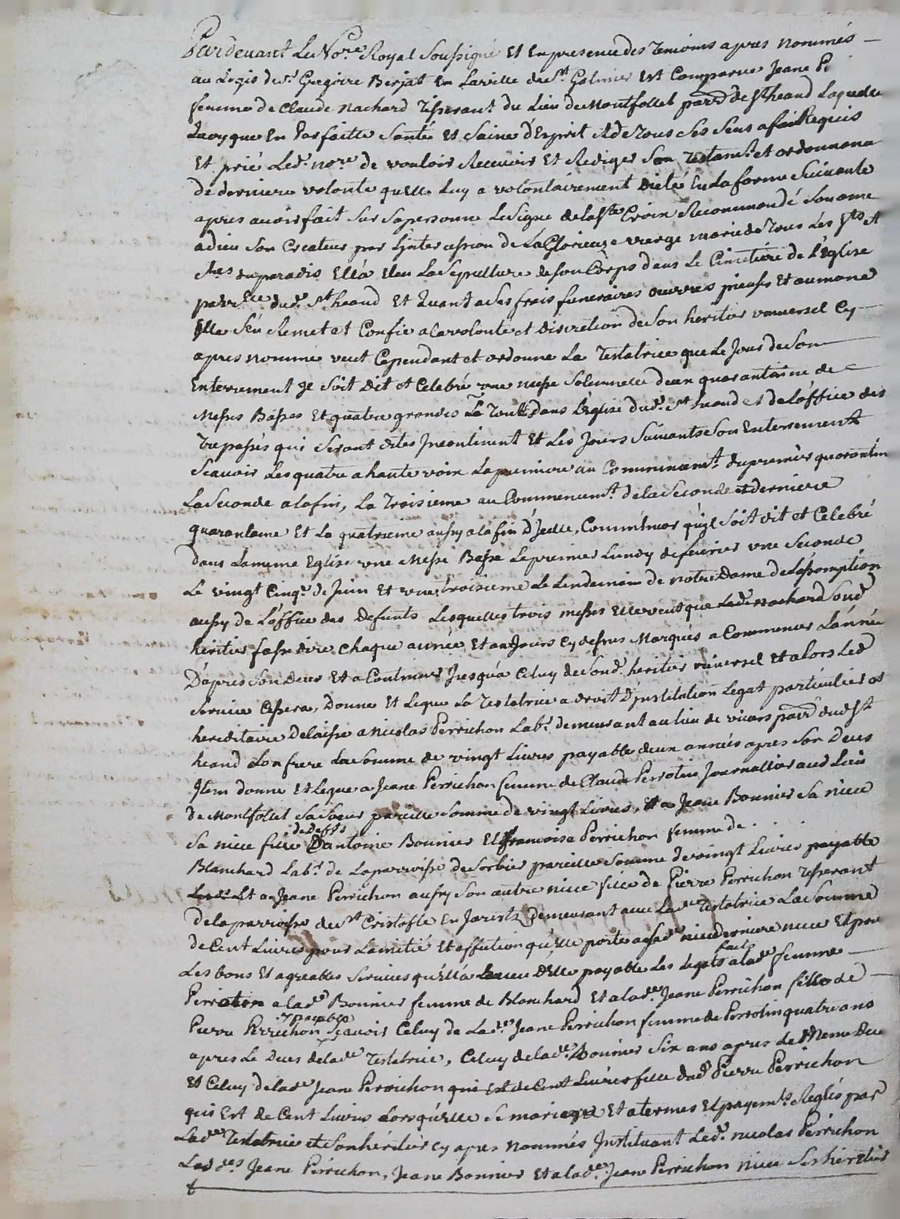 Pardevant Le No.re Royal Soussigné Et En presence des temoins apres nommés
au Logis du sr Gregoire Berjat En La ville de St Galmier Est Comparue Jeane P
femme de Claude nachard tisserant du Lieu de Montfollet parr.se de St heand Laquelle
En parfaitte Santé et Saine d'Esprit & de tous Ses Sens a fait Requis
Et prié Led. nore de vouloir Recevoir Et Rediger Son testam.t et ordonnance
de derniere volonté qu'elle Luy a volontairement dictée En La forme Suivante
apres avoir fait Sur Sa personne Le Signe de La Ste Croix Recommandé Son ame
a dieu Son Createur par L'intercession de La Glorieuze vierge marie de tous Les Sts et
Stes du paradis Ella Eleu La Sepulture de Son Corps dans Le Cimetiere de L'Eglise
parr.lle dud. St heand Et Quant a Ses frais funeraires oeuvres pieuses Et aumone
Elle S'En Remet et Confie a La volonté et discretion de Son heritier vniversel Cy
apres nommé veut Cependant et ordonne La Testatrice que Le Jour de Son
Enterrement Je Soit dit et Celebré vne messe Solemnelle deux quarantaine de
Messes Basses Et quatre grandes Le Tout dans L'Eglise dud. St heand et de L'office des
trepassés qui Seront dites Incontinent Et Les Jours Suivants Son Enterrement
Scavoir Les quatre a haute voix La premiere au Commencem.t du premier quarantin
La Seconde a La fin, La Troisieme au Commencem.t de La Seconde et derniere
quarantaine Et La quatrieme aussy a La fin d'Icelle, Comm'encor qu'il Soit dit et Celebré
dans La meme Eglise vne Messe Basse Le premier Lundy de fevrier vne Seconde
Le vingt Cinq.e de Juin Et vne troisieme Le Lendemain de notre Dame de L'assomption
aussy de L'office des Defunts Lesquelles trois messes Elle veut que Led. nachard Sond.
heritier fasse dire Chaque année, Et aux Jours Cy dessus Marqués a Commencer L'année
D'apres Son deces Et a Continuer Jusqu'a Celuy de Sond. heritier vniversel Et alors Led.
Service Cessera, Donne Et Legue La Testatrice a droit d'Institution Legat particulier et
hereditaire delaisse a nicolas Perrichon Lab.r demeurant au Lieu de parr.se dud. St
heand Son frere La Somme de vingt Livres payable deux années apres Son Deces
Item donne Et Legue a Jeane Perrichon femme de Claude Perrotin Journallier aud. Lieu
de Montfollet Sa Soeur pareille Somme de vingt Livres, & a Jeane Bonnier Sa niece
Sa niece fille de deffts antoine Bonnier Et francoise Perrichon femme de
Blanchard Lab.r de La parroisse de Sorbier pareille Somme de vingt Livres payable
Et a Jeane Perrichon aussy Son autre niece fille de Pierre Perrichon tisserant
de La parroisse de St Cristofle En Jarest demeurant avec Lad. Testatrice La Somme
de Cent Livres pour L'amitié Et affection qu'elle porte a Sad. derniere niece Et pour
Les bons Et agreables Services qu'Ella Receu d'Elle payable Les Legats faits a Lad. femme
Perrotin a Lad.e Bonnier femme de Blanchard Et a Lad.e Jeane Perrichon fille de
Pierre Perrichon payables Scavoir Celuy de Lad.e Jeane Perrichon femme de Perrotin quatre ans
apres Le Deces de Lad.e Testatrice, Celuy de Lad.e Bonnier Six ans apres Le Meme deces
Et Celuy de Lad.e Jeane Perrichon qui Est de Cent Livres fille dud. Pierre Perrichon
qui Est de Cent Livres Lorsqu'elle Se mariera Et a termes Et payem.ts Reglés par
Lad.e Testatrice et Son heritier Cy apres nommés Instituant Led. nicolas Perrichon
Lesd.es Jeane Perrichon, Jeane Bonnier Et a Lad.e Jeane Perrichon niece Ses heritiers